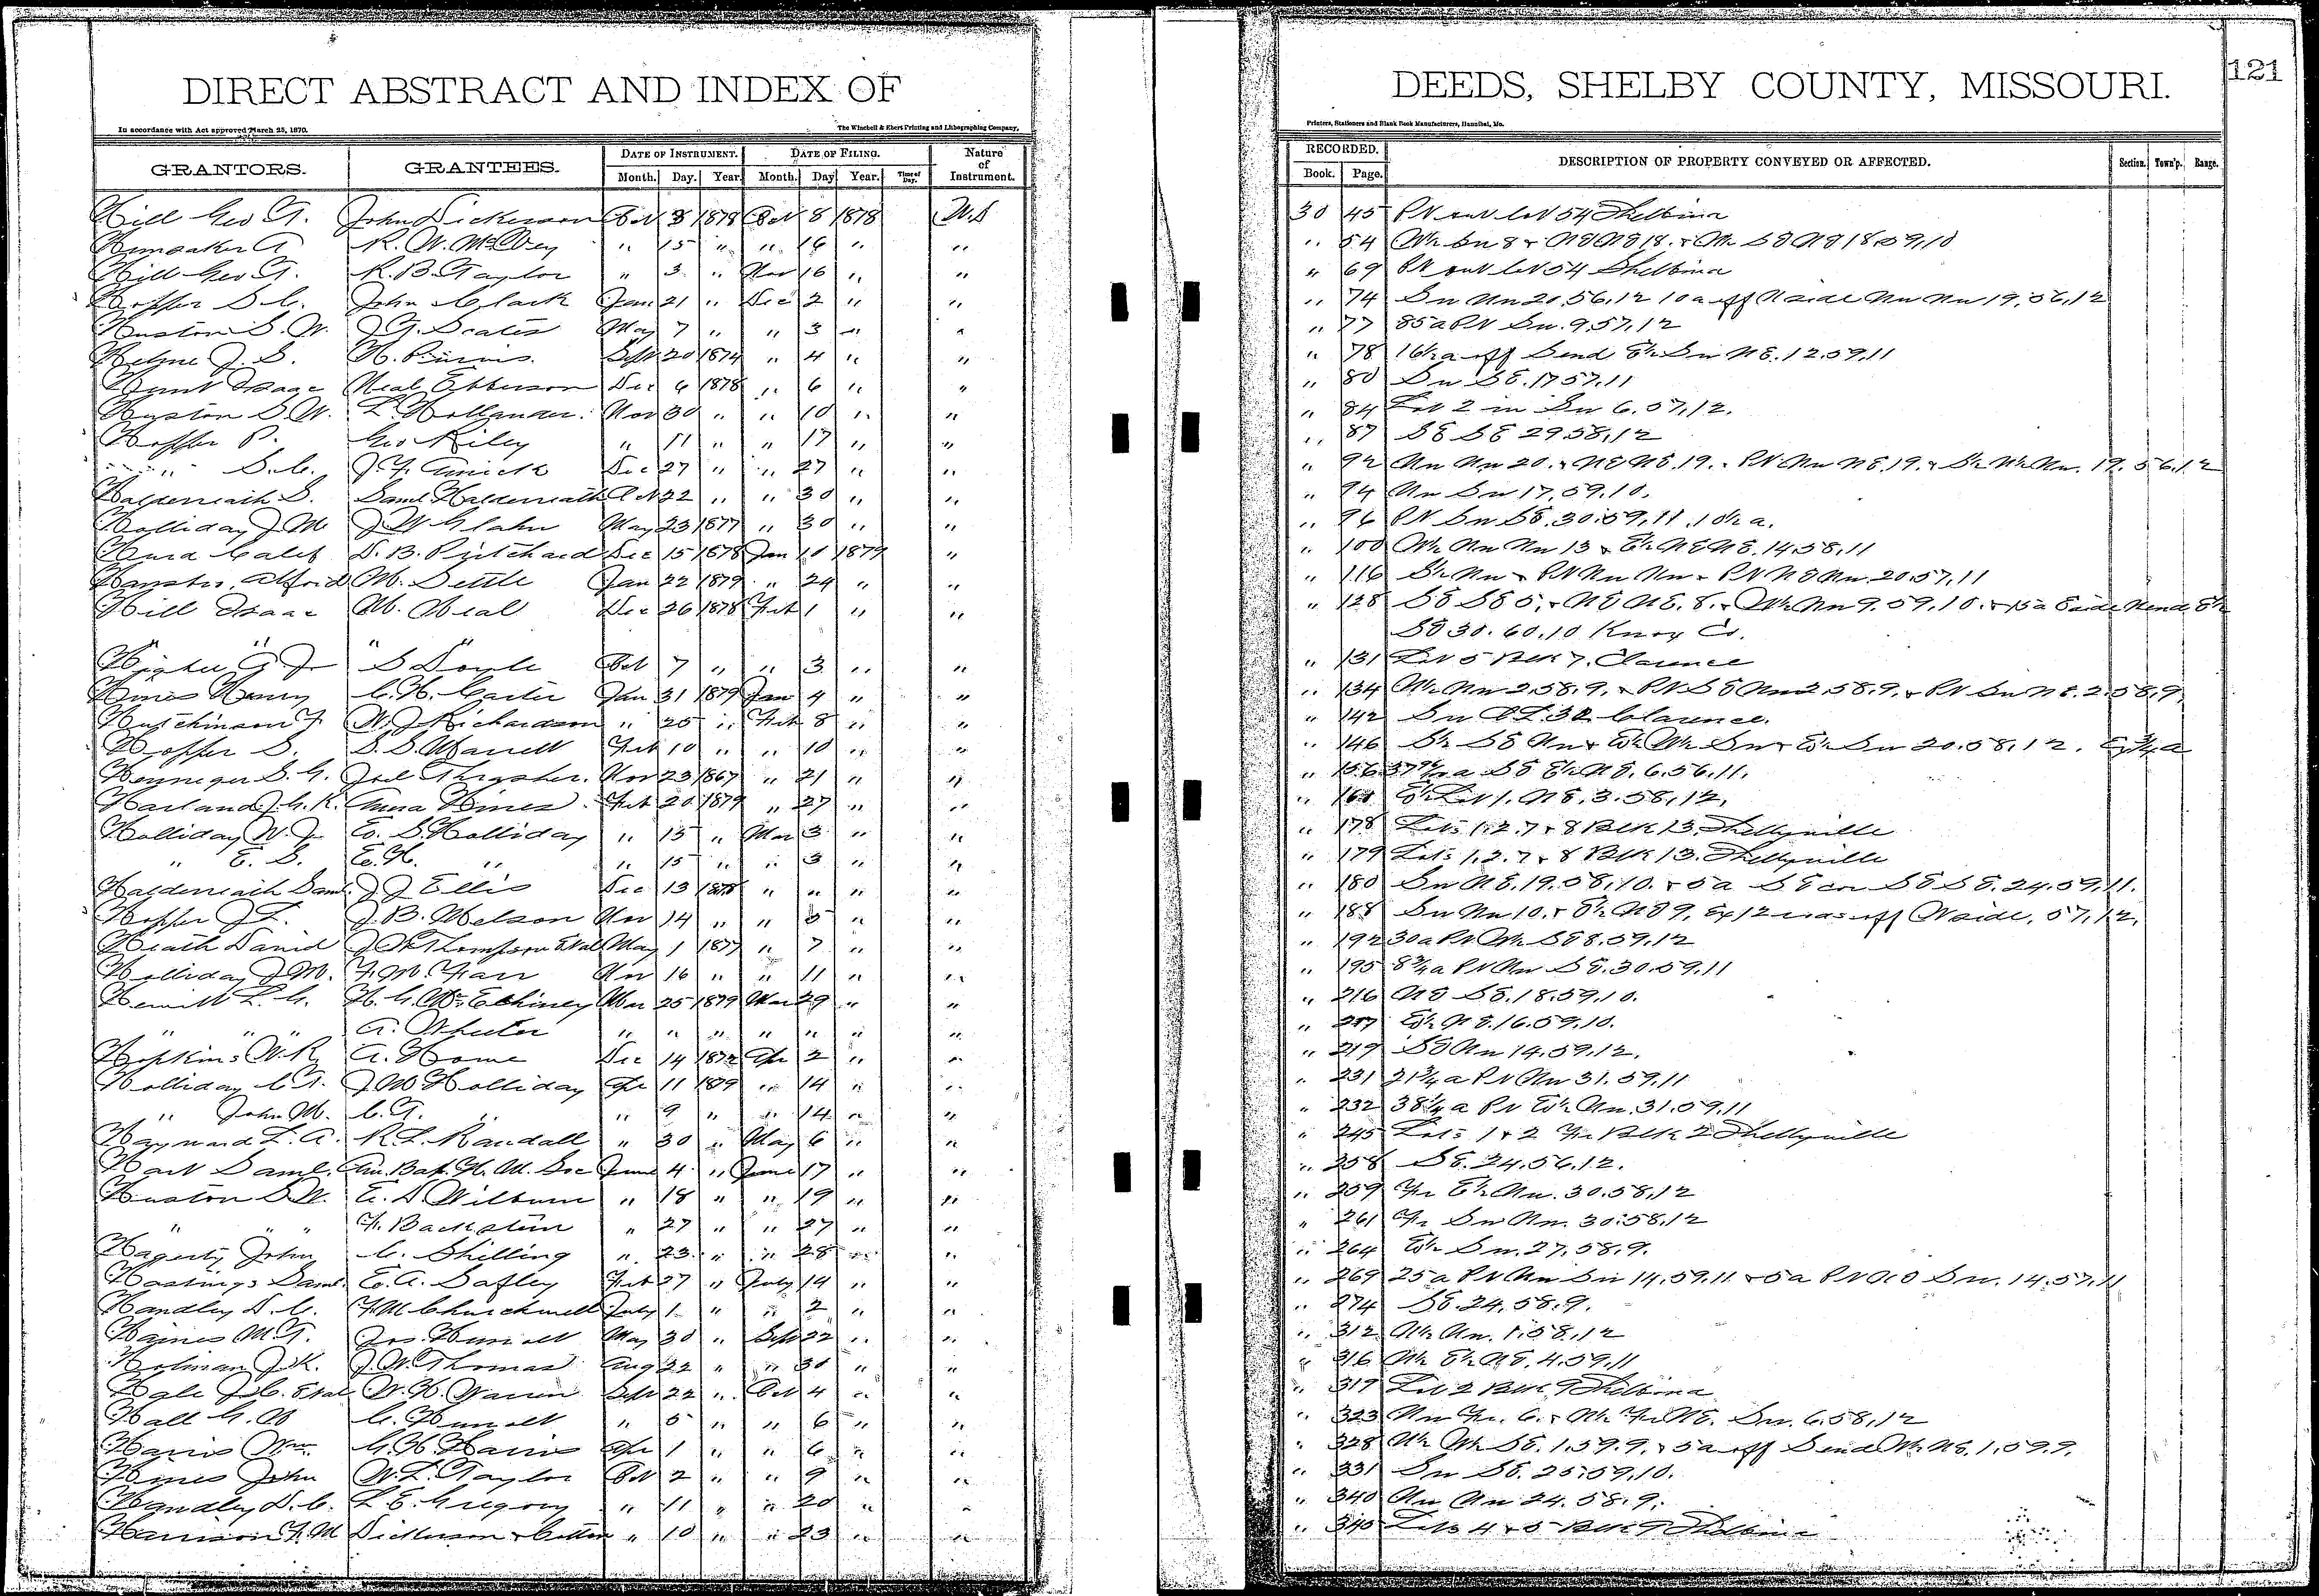 DIRECT ABSTRACT AND INDEX OF
In accordance with Act approved March 25, 1870.
The Winchell & Ebert Printing and Lithographing Company,
GRANTORS. GRANTEES. DATE OF INSTRUMENT. DATE OF FILING. Nature of Instrument.
Month. Day. Year. Month. Day Year. Time of Day.
Hill Geo T. John Dickerson Oct 8 1878 Oct 8 1878 W.D
Hunsaker A " 15 " " 16 " "
Hill Geo T. R. B. Taylor " 3 " Nov 16 " "
Hopper S. C. John Clark Jan 21 " Dec 2 " "
Huston S. W. J. G. Scates May 7 " " 3 " "
J. S. Sept 20 1874 " 4 " "
Hunt Isaac Neal Epperson Dec 6 1878 " 6 " "
Huston S. W. L. Hollander. Nov 30 " " 10 " "
Hopper P. Geo Riley " 11 " " 17 " "
" S. C. Dec 27 " " 27 " "
Halderneath S. Saml. Halderneath Oct 22 " " 30 " "
Holliday J. M. May 23 1877 " 30 " "
Hurd Caleb D. B. Pritchard Dec 15 1878 Jan 10 1879 "
M. Settle Jan 22 1879 " 24 " "
Hill Isaac M. Neal Dec 26 1878 Feb 1 " "
" " " "
S Doyle Oct 7 " " 3 " "
Hines Henry C. H. Carter Jan 31 1879 Jan 4 " "
Hutchinson F. W. J. Richardson " 25 " Feb 8 " "
Hopper S. Feb 10 " " 10 " "
Henneger S. G. Joel Thrasher. Nov 23 1867 " 21 " "
Harland J. G. K. Anna Hines Feb 20 1879 " 27 " "
Holliday W. J. E. S. Holliday " 15 " Mar 3 " "
" E. S. E. H. " " 15 " " 3 " "
Halderneath Saml. J J Ellis Dec 13 1878 " " " "
Hopper J L. J. B. Melson Nov 14 " " 5 " "
Heath David J. W. Thompson Etal May 1 1877 " 7 " "
Holliday J. M. F. M. Farr Nov 16 " " 11 " "
Hewitt L. G. Mar 25 1879 Mar 29 " "
" " " A. Wheeler " " " " " " "
Hopkins W. R. A. Howe Dec 14 1872 Apr 2 " "
Holliday C. T. J. M. Holliday Apr 11 1879 " 14 " "
" John M. C. T. " " 9 " " 14 " "
Hayward L. A. R. L. Randall " 30 " May 6 " "
Hart Saml. Am. Bap. H. M. Soc June 4 " June 17 " "
Huston S. W. E. D. Wilburn " 18 " " 19 " "
" " " F. " 27 " " 27 " "
Hagerty John C. Shilling " 23 " " 28 " "
Hastings Saml. E. A. Safley Feb 27 " July 14 " "
Handley D. C. F. M. Churchwell July 1 " " 2 " "
Haines M. T. May 30 " Sept 22 " "
Holman J. K. J. W. Thomas Aug 22 " " 30 " "
Hale J. C. Etal W. H. Warren Sept 22 " Oct 4 " "
Hall G. W " 5 " " 6 " "
Harris Wm. G. H. Harris Apr 1 " " 6 " "
Hines John W. L. Taylor Oct 2 " " 9 " "
Handley D. C. L. E. Gregory " 11 " " 20 " "
Harrison F. M Dickerson & " 10 " " 23 " "
DEEDS, SHELBY COUNTY, MISSOURI.
121
Printers, Stationers and Blank Book Manufacturers, Hannibal, Mo.
RECORDED. DESCRIPTION OF PROPERTY CONVEYED OR AFFECTED. Section. Town'p. Range.
Book. Page.
30 45 Pt out lot 54 Shelbina
" 54 W½ Sw 8 & NE NE 18. & W½ SE NE 18.59,10
" 69 Pt out lot 54 Shelbina
" 74 Sw Nw 20,56,12 10 a off N side Nw Nw 19,56,12
" 77 85 a Pt Sw. 9,57,12
" 78 16½ a off S end E½ Sw NE. 12.59.11
" 80 Sw SE. 17 57,11
" 84 Lot 2 in Sw 6.57,12.
" 87 SE SE 29.58,12
" 92 Nw Nw 20. & NE NE. 19. & Pt Nw NE. 19. & S½ W½ Nw. 19. 56.12
" 94 Nw Sw 17,59.10.
" 96 Pt Sw SE. 30.59,11. 10½ a.
" 100 W½ Nw Nw 13 & E½ NE NE. 14.58,11
" 116 S½ Nw & Pt Nw Nw & Pt NE Nw. 20.57,11
" 128 SE SE 5, & NE NE. 8. & W½ Nw 9.59.10. & 15 a E side N end E½
SE 30. 60.10 Knox Co.
" 131 Lot 5 Blk 7. Clarence
" 134 W½ Nw 2.58.9. & Pt SE Nw 2.58.9. & Pt Sw NE. 2.58.9.
" 142 Sw O L. 32. Clarence.
" 146 S½ SE Nw & E½ W½ Sw & E½ Sw 20.58,12. Ex ¾ a
" 156 SE E½ NE. 6.56.11.
" 161 E½ Lot 1. NE. 3.58,12,
" 178 Lots 1.2.7 & 8 Blk 13. Shelbyville
" 179 Lots 1.2.7 & 8 Blk 13. Shelbyville
" 180 Sw NE. 19.58,10. & 5 a SE cor SE SE. 24.59,11.
" 188 Sw Nw 10. & E½ NE 9. Ex 12 off N side, 57,12,
" 192 30 a Pt W½ SE 8.59,12
" 195 8¾ a Pt Nw SE. 30.59,11
" 216 NE SE. 18.59,10.
" 217 E½ NE. 16.59,10.
" 219 SE Nw 14.59,12.
" 231 21¾ a Pt Nw 31.59,11
" 232 38¼ a Pt E½ Nw. 31.59,11
" 245 Lots 1 & 2 Fr Blk 2 Shelbyville
" 258 SE. 24.56.12.
" 259 Fr E½ Nw. 30.58,12
" 261 Fr Sw Nw. 30.58,12
" 264 E½ Sw. 27,58.9.
" 269 25 a Pt Nw Sw 14.59.11 & 5 a Pt NE Sw. 14.57.11
" 274 SE. 24.58.9.
" 312 W½ Nw. 1.58,12
" 316 W½ E½ NE. 4.59,11
" 317 Lot 2 Blk 9 Shelbina
" 323 Nw Fr. 6. & W½ Fr NE. Sw. 6.58,12
" 328 W½ W½ SE. 1.59.9. & 5 a off S end W½ NE. 1.59.9.
" 331 Sw SE. 25.59,10.
" 340 Nw Nw 24.58.9.
" 345 Lots 4 & 5 Blk 9 Shelbina